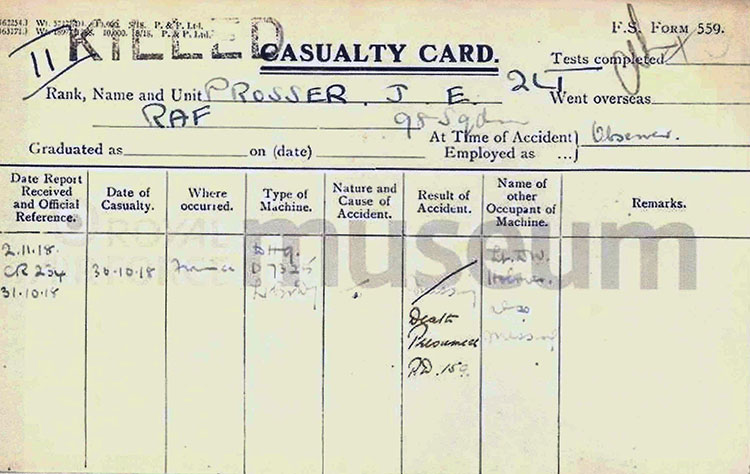 5/18. P. & P. Ltd.
10,000. 8/18. P. & P. Ltd.
F.S. FORM 559.
KILLED
CASUALTY CARD.
11
Tests completed
Rank, Name and Unit PROSSER. J E. 2Lt Went overseas
RAF 98 Sqdn
At Time of Accident Employed as ...} Observer.
Graduated as on (date)
Date Report Received and Official Reference.
Date of Casualty.
Where occurred.
Type of Machine.
Nature and Cause of Accident.
Result of Accident.
Name of other Occupant of Machine.
Remarks.
ROYAL
museum
2.11.18.
CR 234
31.10.18
30.10.18
France
DH9.
D 7325
Missing
Death
Presumed
Lt. D.W.
also
missing